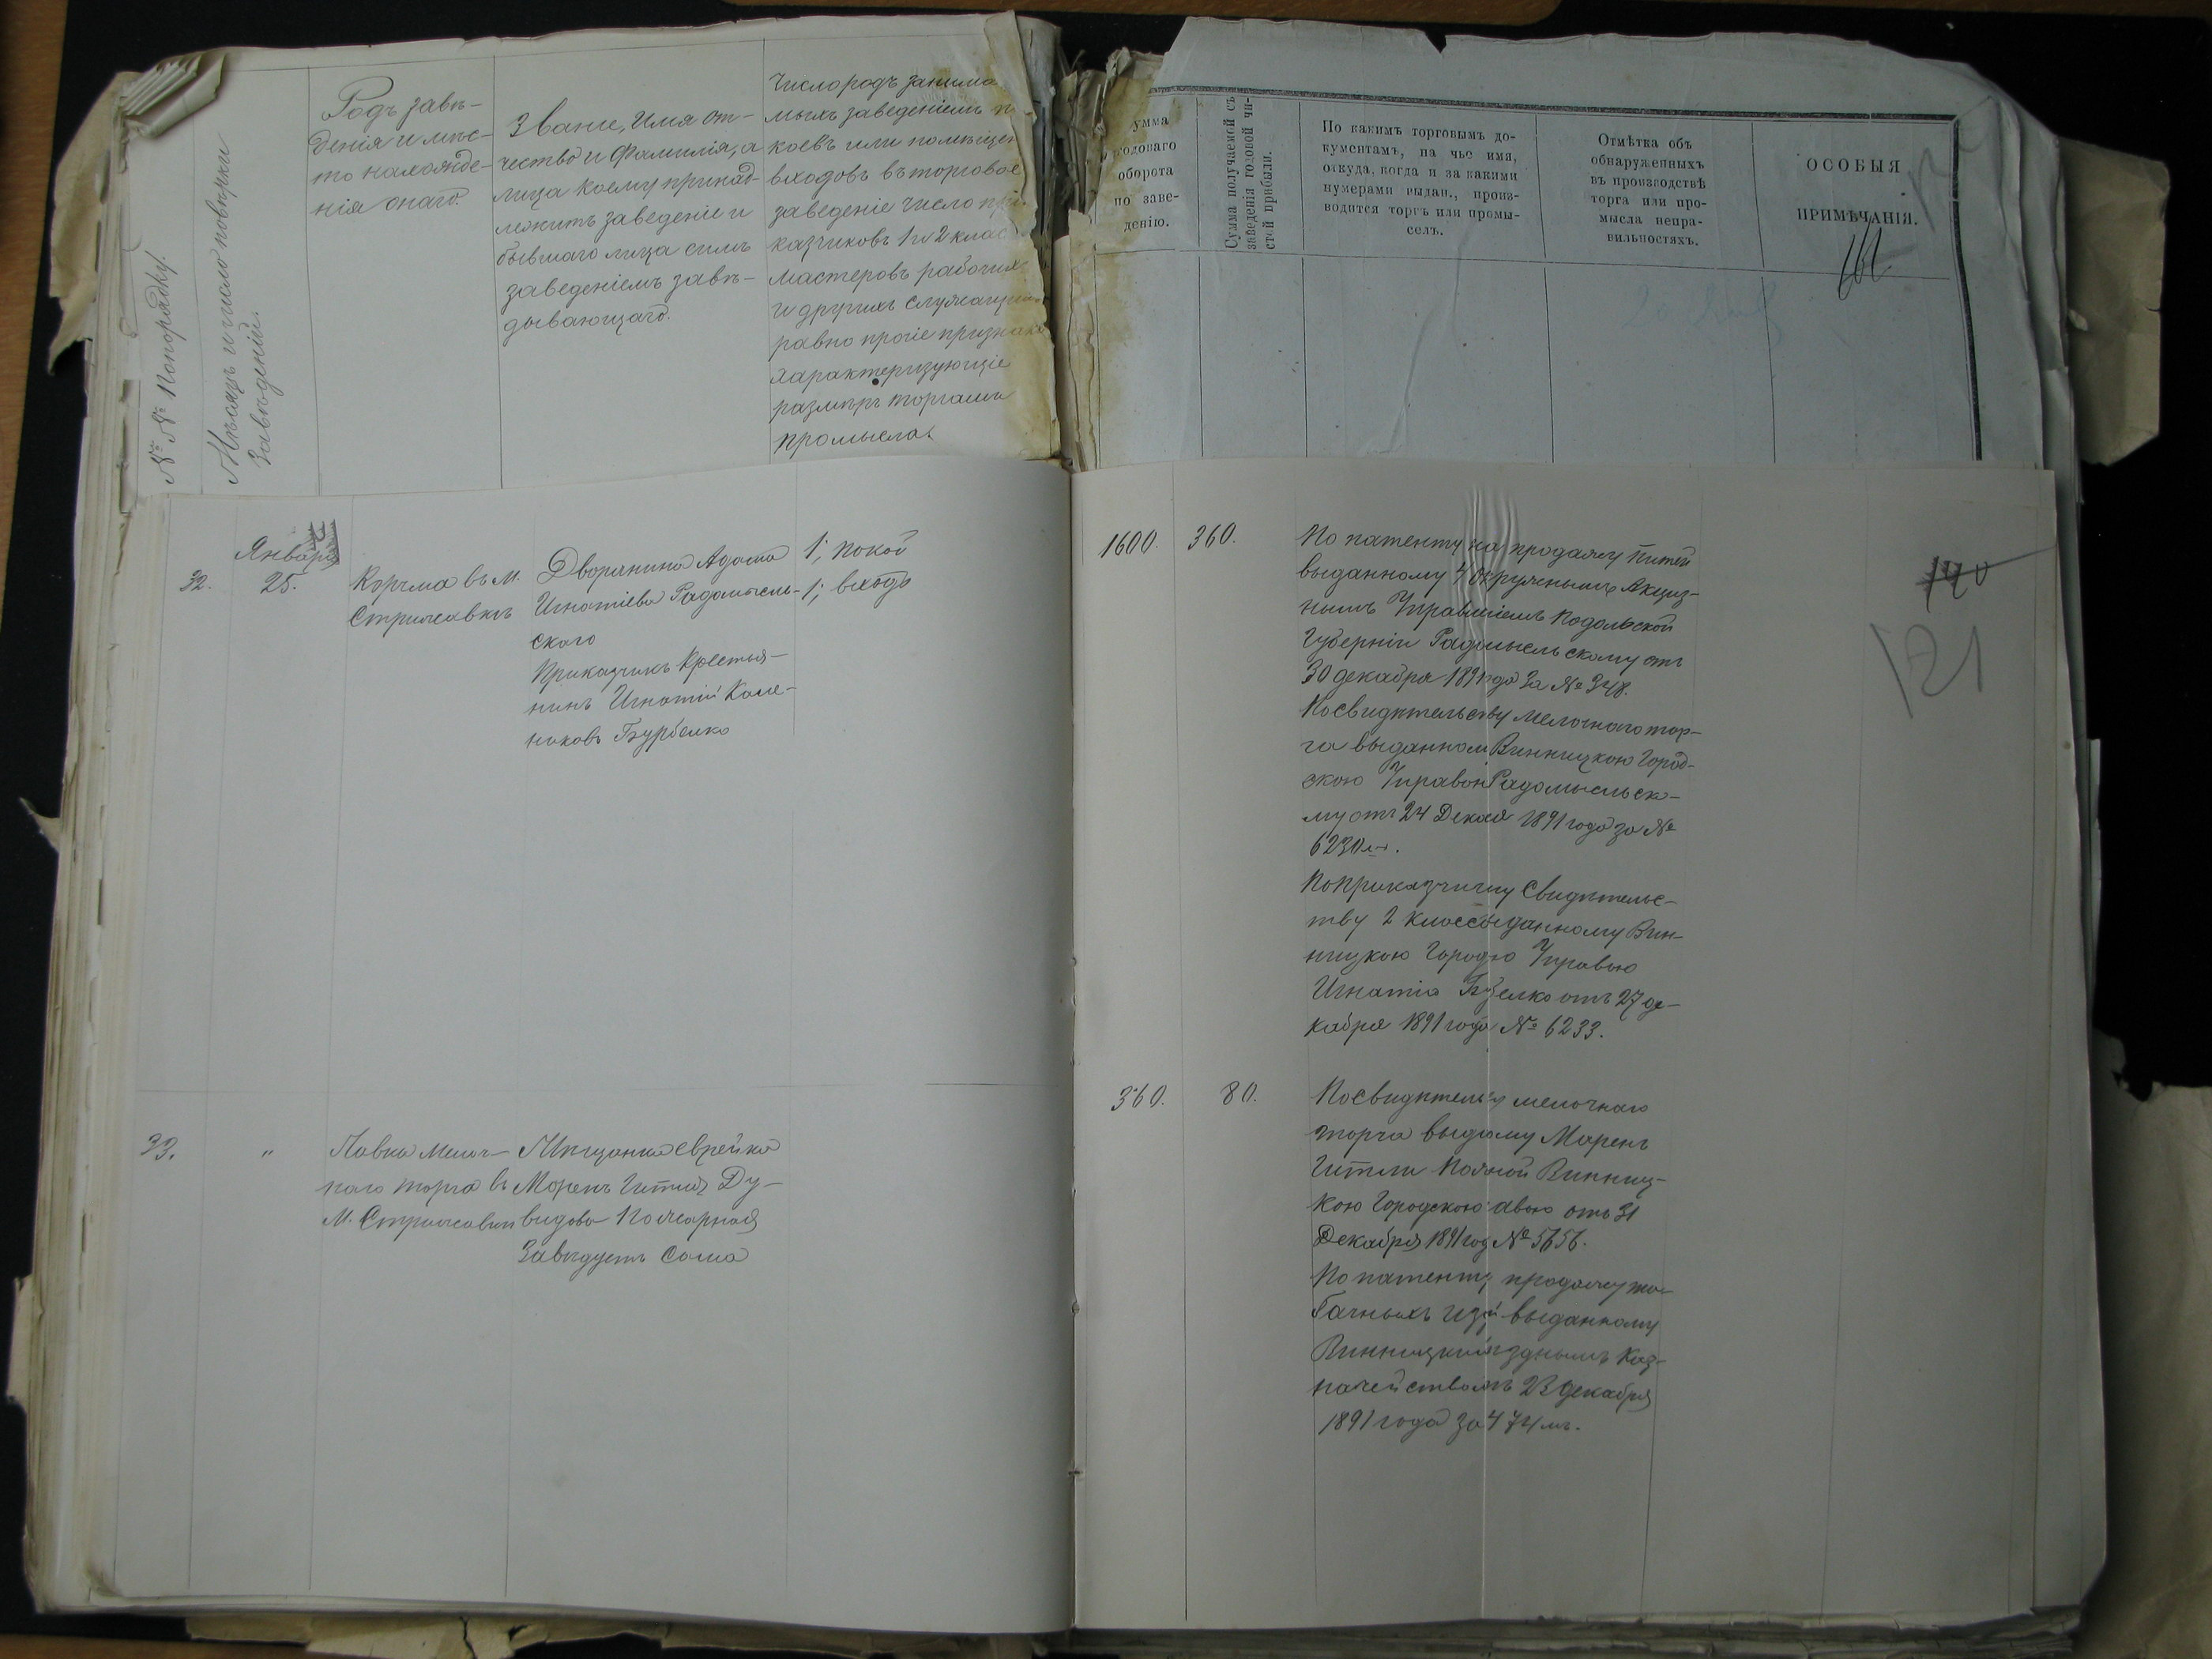 № № Попорядку.
Мѣсяцъ и число повѣрки
Заведеній.
Родъ заве-
денія и мѣс-
то нахожде-
нія онаго.
Званіе, Имя от-
чество и Фамилія, а
лица коему принад-
лежитъ заведеніе и
бывшаго лица симъ
заведеніемъ завѣ-
дывающаго.
Число родъ занима
мыхъ заведеніемъ п
коевъ или помѣщен
входовъ въ торговое
заведеніе число при
казчиковъ 1 и 2 клас
мастеровъ рабочихъ
и другихъ служащихъ
равно прочіе признаки
характеризующіе
размѣръ торгами
промысла.
умма
годоваго
оборота
по заве-
денію.
Сумма получаемой съ
заведенія годовой чи-
стой прибыли.
По какимъ торговымъ до-
кументамъ, на чье имя,
откуда, когда и за какими
нумерами выдан., произ-
водится торгъ или промы-
селъ.
Отмѣтка объ
обнаруженныхъ
въ производствѣ
торга или про-
мысла непра-
вильностяхъ.
ОСОБЫЯ
ПРИМѢЧАНІЯ.
32.
Января
25.
Корчма въ м.
Стрижавкѣ
Дворянина Адама
Игнатіева Радомысль-
скаго
Приказчикъ Крестья-
нинъ Игнатій
Бурбелко
1; покой
1; входъ
1600.
360.
По патенту на продажу питей
выданному 4 Окружнымъ Акциз-
нымъ Управленіемъ Подольской
Губерніи Радомысльскому отъ
30 декабря 1891 года За № 348.
По свидѣтельству мелочнаго тор-
га выданном Винницкою Город-
скою Управою Радомысльско-
му отъ 24 Декаб 1891 года за №
6230мъ.
По Приказчичу Свидѣтельс-
тву 2 класса выданному Вин-
ницкою Городю Управою
Игнатія отъ 27 де-
кабря 1891 года № 6233.
140
121
33.
"
Лавка мелоч-
наго торга въ
М. Стрижавки
Мѣщанка еврейка
Маренъ Гитля Ду-
видова Пожарная
Завѣдуетъ Сама
360.
80.
По свидѣтельс мелочнаго
торга выданому Маренъ
Гитли Пожной Винниц-
кою Городскою авою отъ 31
Декабря 1891 год № 5656.
По патенту продажу та-
бачныхъ изд выданному
Винницкимъ ѣзднымъ Каз-
начействомъ 23 декабря
1891 года за 474мъ.